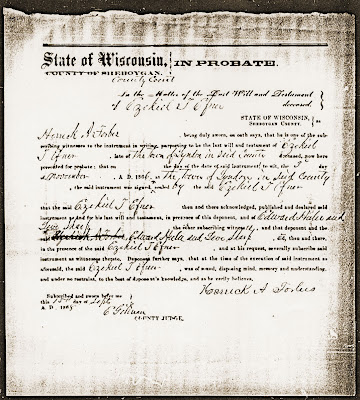 State of Wisconsin, IN PROBATE.
COUNTY OF SHEBOYGAN.
County Court
In the Matter of the Last Will and Testament
of Ezekiel T Efner deceased.
STATE OF WISCONSIN, ss
SHEBOYGAN COUNTY.
Herrick A Forbes being duly sworn, on oath says, that he is one of the sub-
scribing witnesses to the instrument in writing, purporting to be the last will and testament of Ezekiel
T Efner, late of the town of Lyndon in said County deceased, now here
presented for probate: that on the day of the date of said instrument, to wit, the day
of November A. D. 186 , at the town of Lyndon in said County
, the said instrument was signed, sealed by the said Ezekiel T Efner
that the said Ezekiel T Efner then and there acknowledged, published and declared said
instrument as and for his last will and testament, in presence of this deponent, and of Edward Heles and
the other subscribing witness , and that deponent and the
said Edward Heles and , then and there,
in the presence of the said Ezekiel T Efner and at his request, severally subscribed said
instrument as witnesses thereto. Deponent further says, that at the time of the execution of said instrument as
aforesaid, the said Ezekiel T Efner, was of sound, disposing mind, memory and understanding,
and under no restraint, to the best of deponent's knowledge, and as he verily believes.
Herrick A. Forbes
Subscribed and sworn before me
this 15 day of Sept
A. D. 186
COUNTY JUDGE.